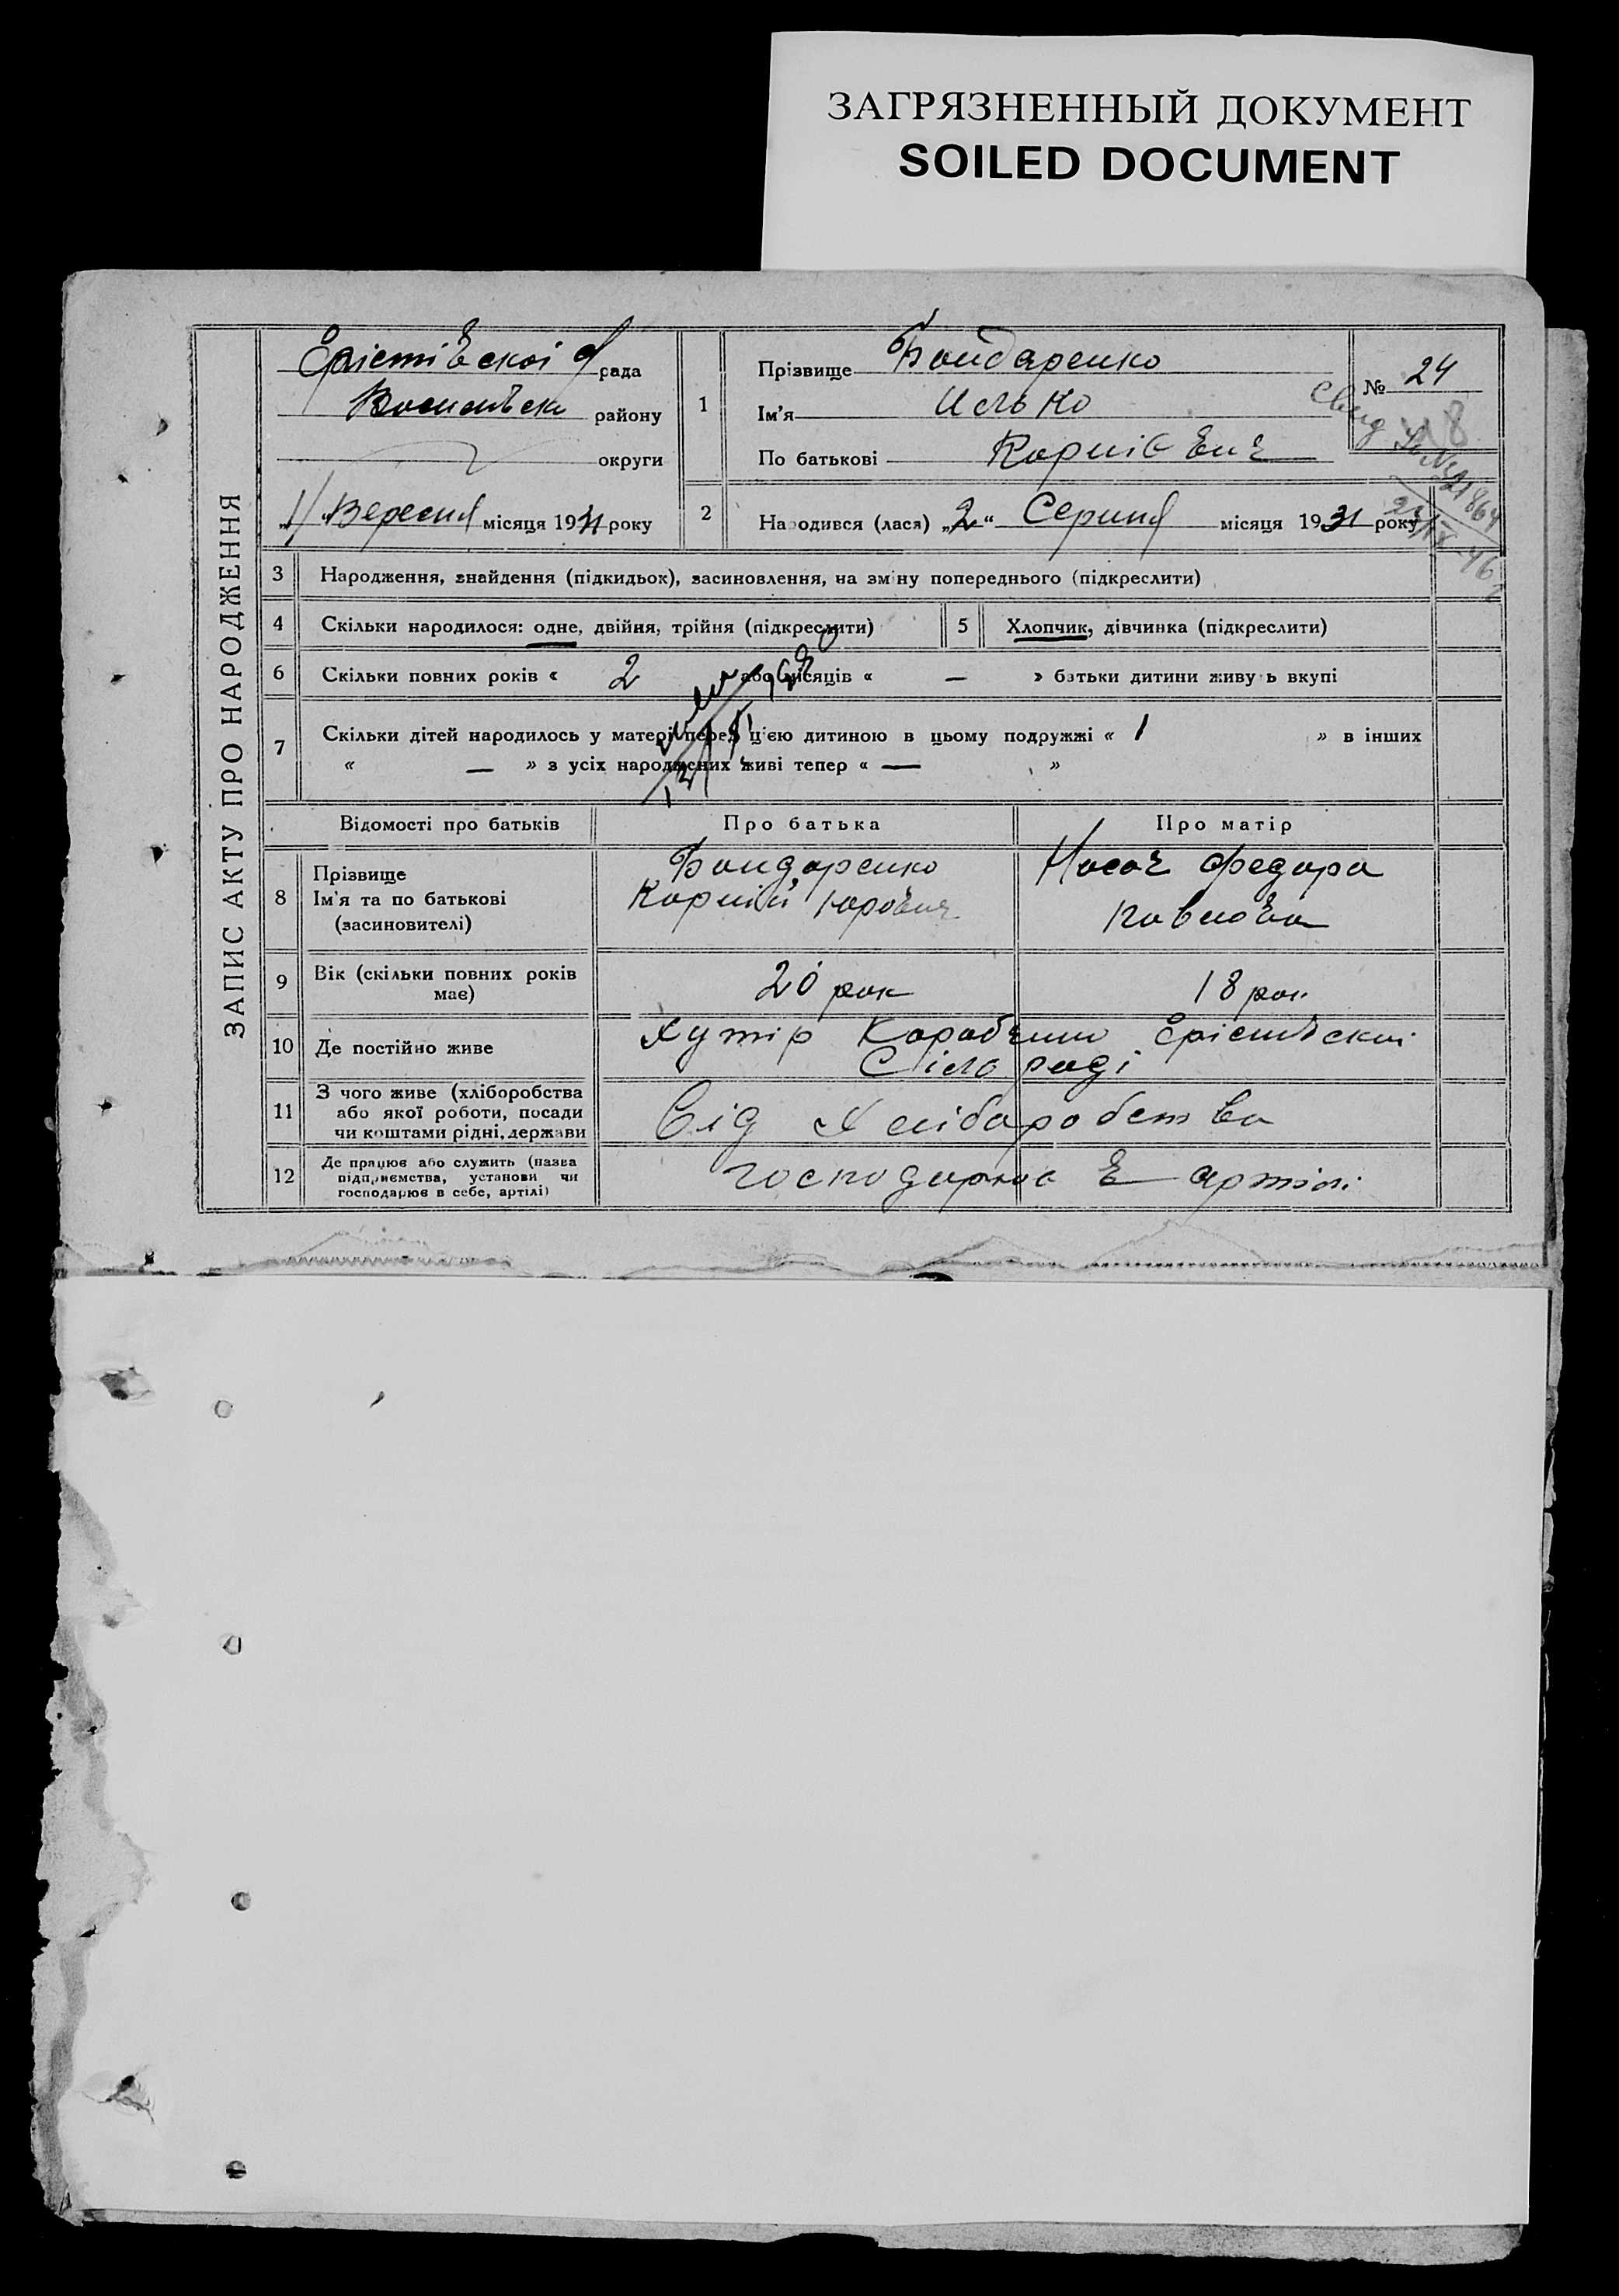 ЗАГРЯЗНЕННЫЙ ДОКУМЕНТ
SOILED DOCUMENT
ЗАПИС АКТУ ПРО НАРОДЖЕННЯ
Єрістівскоі с рада
району
округи
„1/“ Вересня місяця 1931 року
1
Прізвище Бондаренко
Ім'я Илько
По батькові Корнієвич
№ 24
Свид
2
Народився (лася) „2“ Серпня місяця 1931 року
3 Народження, знайдення (підкидьок), засиновлення, на зміну попереднього (підкреслити)
4 Скільки народилося: одне, двійня, трійня (підкреслити)
5 Хлопчик, дівчинка (підкреслити)
6 Скільки повних років « 2 або місяців « — » батьки дитини живуть вкупі
7 Скільки дітей народилось у матері перед цією дитиною в цьому подружжі « 1 » в інших
« — » з усіх народжених живі тепер « — »
Відомості про батьків Про батька Про матір
8 Прізвище
Ім'я та по батькові
(засиновителі)
Бондаренко
Корній Юрович
Носач Федора
Павловна
9 Вік (скільки повних років
має)
20 рок
18 рок
10 Де постійно живе
Хутір Єрістівскоі
Сіло раді
11 З чого живе (хліборобства
або якої роботи, посади
чи коштами рідні, держави
Від Хліборобства
12 Де працює або служить (назва
підприємства, установи чи
господарює в себе, артілі)
господарює в артілі